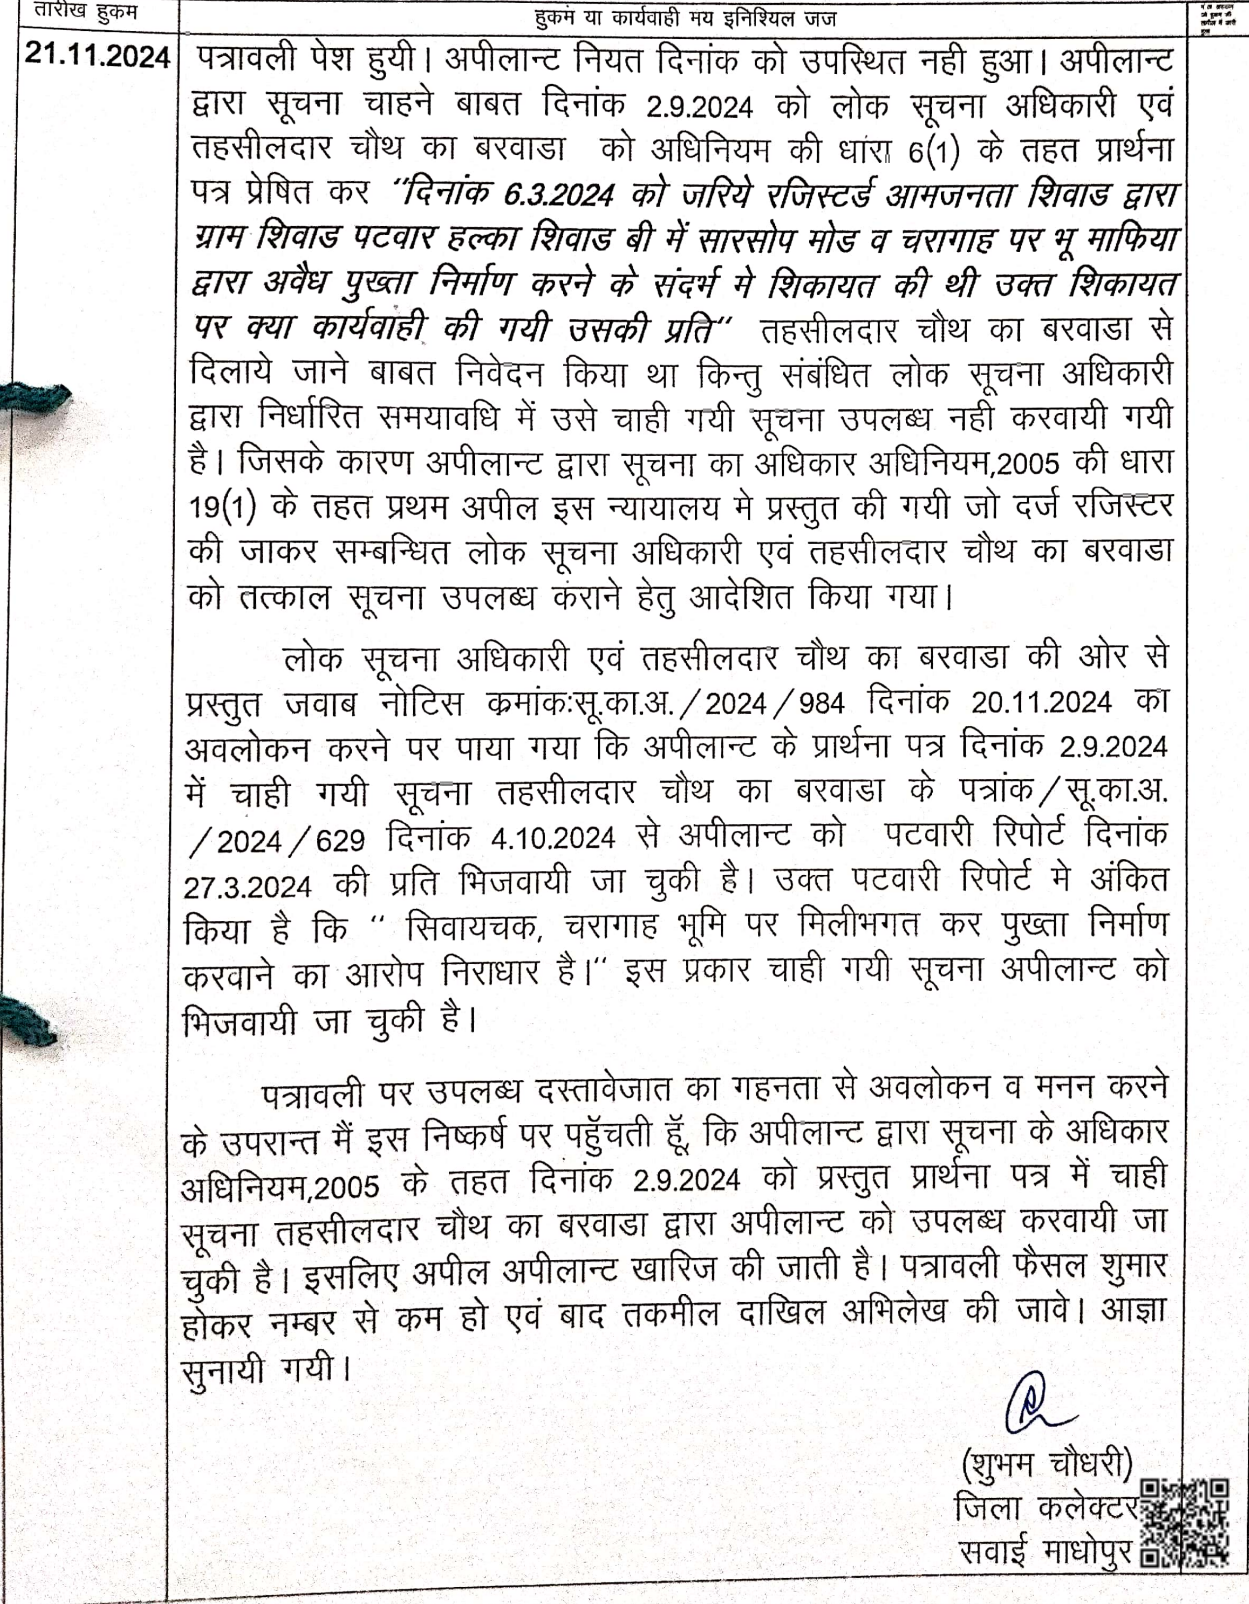 तारीख हुकम
हुकम या कार्यवाही मय इनिश्यिल जज
21.11.2024
पत्रावली पेश हुयी। अपीलान्ट नियत दिनांक को उपस्थित नही हुआ। अपीलान्ट
द्वारा सूचना चाहने बाबत दिनांक 2.9.2024 को लोक सूचना अधिकारी एवं
तहसीलदार चौथ का बरवाडा को अधिनियम की धारा 6(1) के तहत प्रार्थना
पत्र प्रेषित कर ''दिनांक 6.3.2024 को जरिये रजिस्टर्ड आमजनता शिवाड द्वारा
ग्राम शिवाड पटवार हल्का शिवाड बी में सारसोप मोड व चरागाह पर भू माफिया
द्वारा अवैध पुख्ता निर्माण करने के संदर्भ मे शिकायत की थी उक्त शिकायत
पर क्या कार्यवाही की गयी उसकी प्रति'' तहसीलदार चौथ का बरवाडा से
दिलाये जाने बाबत निवेदन किया था किन्तु संबंधित लोक सूचना अधिकारी
द्वारा निर्धारित समयावधि में उसे चाही गयी सूचना उपलब्ध नही करवायी गयी
है। जिसके कारण अपीलान्ट द्वारा सूचना का अधिकार अधिनियम,2005 की धारा
19(1) के तहत प्रथम अपील इस न्यायालय मे प्रस्तुत की गयी जो दर्ज रजिस्टर
की जाकर सम्बन्धित लोक सूचना अधिकारी एवं तहसीलदार चौथ का बरवाडा
को तत्काल सूचना उपलब्ध कराने हेतु आदेशित किया गया।
लोक सूचना अधिकारी एवं तहसीलदार चौथ का बरवाडा की ओर से
प्रस्तुत जवाब नोटिस क्रमांकःसू.का.अ./2024/984 दिनांक 20.11.2024 का
अवलोकन करने पर पाया गया कि अपीलान्ट के प्रार्थना पत्र दिनांक 2.9.2024
में चाही गयी सूचना तहसीलदार चौथ का बरवाडा के पत्रांक/सू.का.अ.
/2024/629 दिनांक 4.10.2024 से अपीलान्ट को पटवारी रिपोर्ट दिनांक
27.3.2024 की प्रति भिजवायी जा चुकी है। उक्त पटवारी रिपोर्ट मे अंकित
किया है कि '' सिवायचक, चरागाह भूमि पर मिलीभगत कर पुख्ता निर्माण
करवाने का आरोप निराधार है।'' इस प्रकार चाही गयी सूचना अपीलान्ट को
भिजवायी जा चुकी है।
पत्रावली पर उपलब्ध दस्तावेजात का गहनता से अवलोकन व मनन करने
के उपरान्त मैं इस निष्कर्ष पर पहुँचती हूँ, कि अपीलान्ट द्वारा सूचना के अधिकार
अधिनियम,2005 के तहत दिनांक 2.9.2024 को प्रस्तुत प्रार्थना पत्र में चाही
सूचना तहसीलदार चौथ का बरवाडा द्वारा अपीलान्ट को उपलब्ध करवायी जा
चुकी है। इसलिए अपील अपीलान्ट खारिज की जाती है। पत्रावली फैसल शुमार
होकर नम्बर से कम हो एवं बाद तकमील दाखिल अभिलेख की जावे। आज्ञा
सुनायी गयी।
(शुभम चौधरी)
जिला कलेक्टर
सवाई माधोपुर